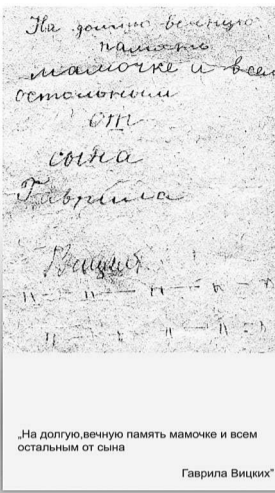 На долгию вечную
память
мамочке и всем
остольным
от
сына
Гаврила
Вицких
„На долгую,вечную память мамочке и всем
остальным от сына
Гаврила Вицких"